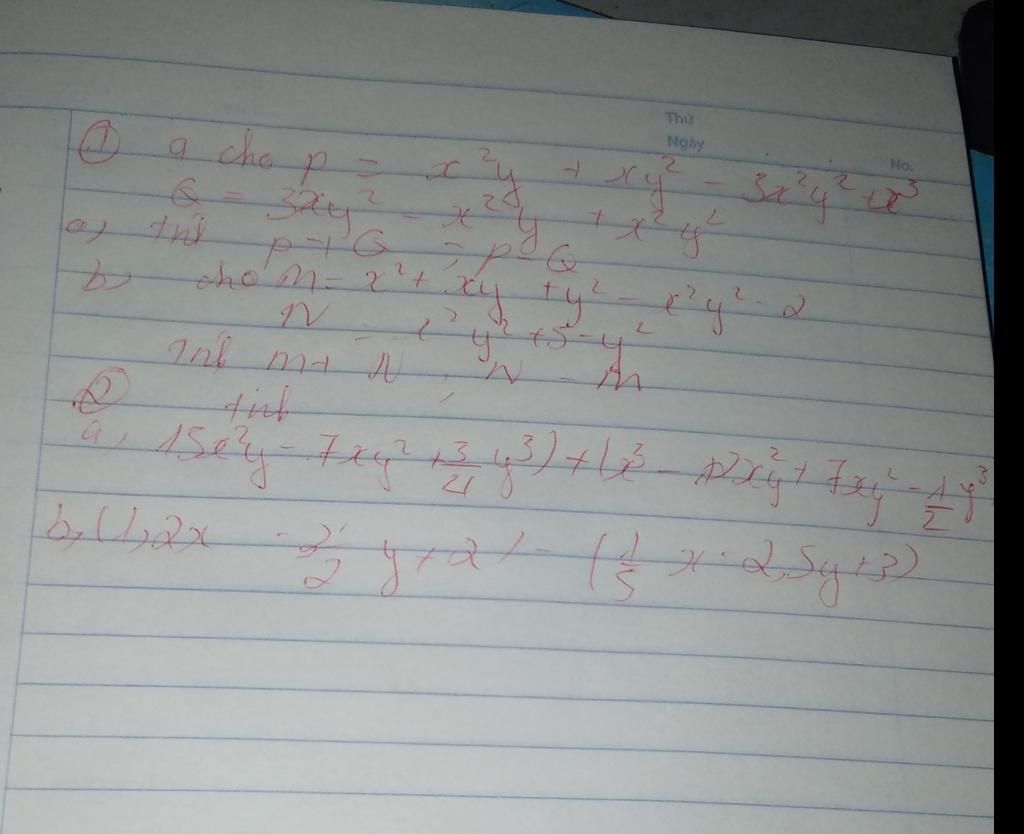 Thứ
Ngày
No.
① a cho p = x²y + xy² - 3x²y² + x³
Q = 3xy² - x²y + x²y²
a, tính p + Q ; p - Q
b, cho m = x² + xy + y² - x²y² - 2
N = x²y² + 5 - y²
Tính m + N ; N - m
② tính
a, 15x²y - 7xy² + 3/4 y³) + (x³ - 12xy² + 7xy² - 1/2 y³
b, (1,2x - /2 y + 2) - (1/5 x - 2,5y + 3)